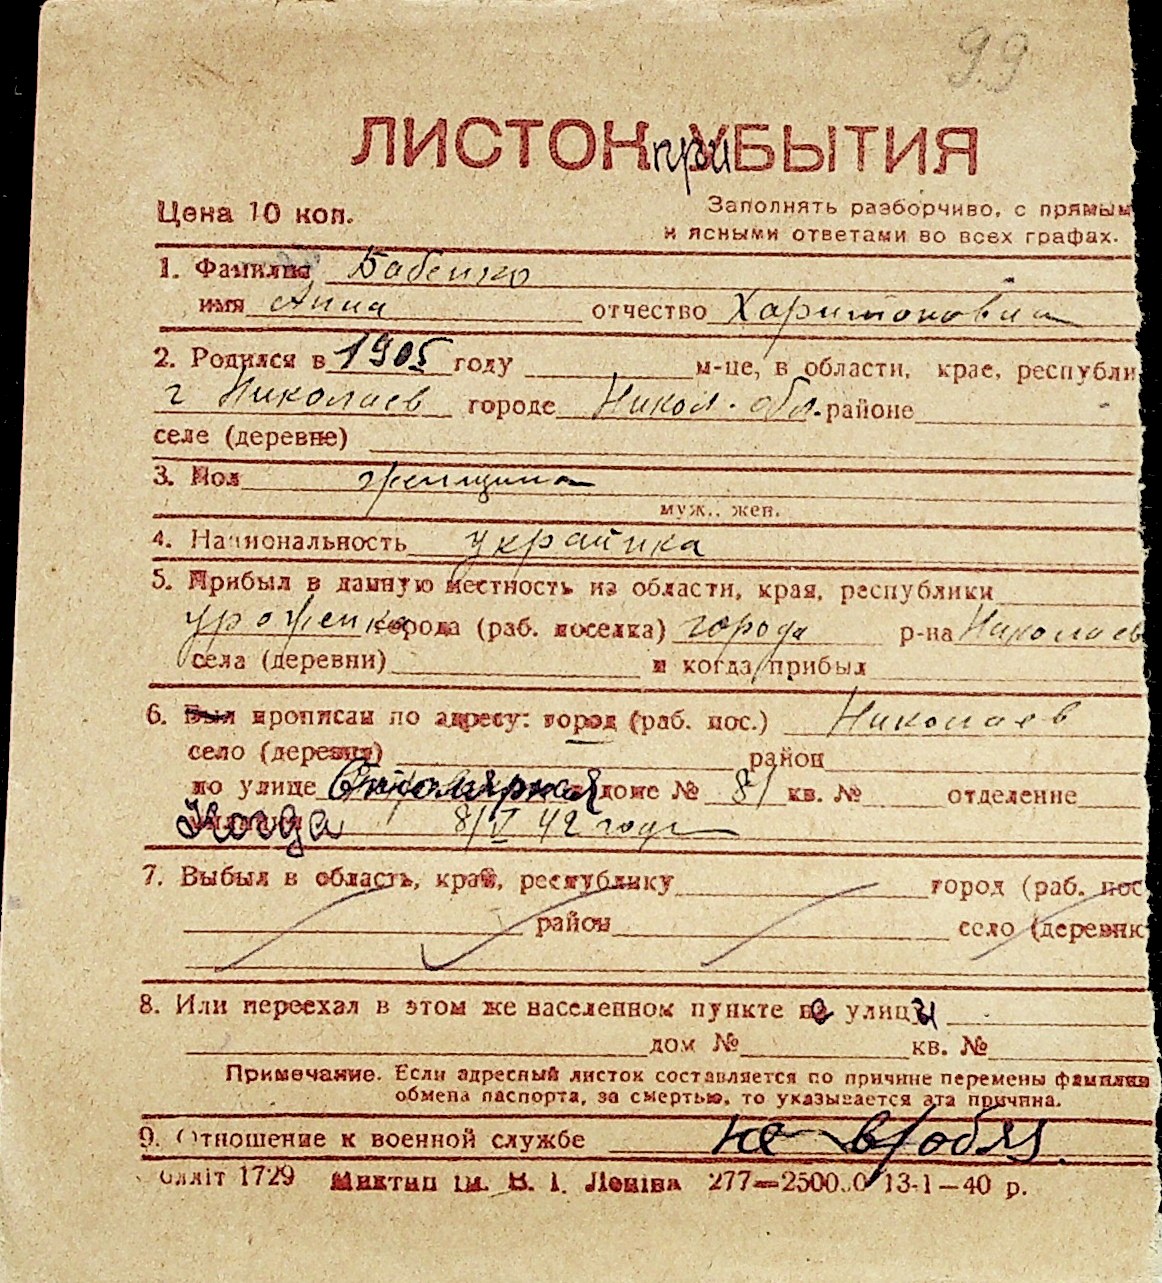 99
ЛИСТОКприБЫТИЯ
Цена 10 коп.
Заполнять разборчиво, с прямым
и ясными ответами во всех графах.
1. Фамилия Бабенко
имя Анна отчество Харитоновна
2. Родился в 1905 году м-це, в области, крае, республи
г Николаев городе Никол. обл. районе
селе (деревне)
3. Пол женщина
муж., жен.
4. Национальность украинка
5. Прибыл в данную местность из области, края, республики
уроженка города (раб. поселка) города р-на Николаев
села (деревни) и когда прибыл
6. Был прописан по адресу: город (раб. пос.) Николаев
село (деревня) район
по улице Столярная доме № 81 кв. № отделение
Когда 8/V 42 года
7. Выбыл в область, край, республику город (раб. пос
район село (деревню
8. Или переехал в этом же населенном пункте с улицы
дом № кв. №
Примечание. Если адресный листок составляется по причине перемены фамилии
обмена паспорта, за смертью, то указывается эта причина.
9. Отношение к военной службе не в/обяз.
Оллiт 1729 Миктип iм. В. I. Ленiна 277—2500..0 13-1—40 р.